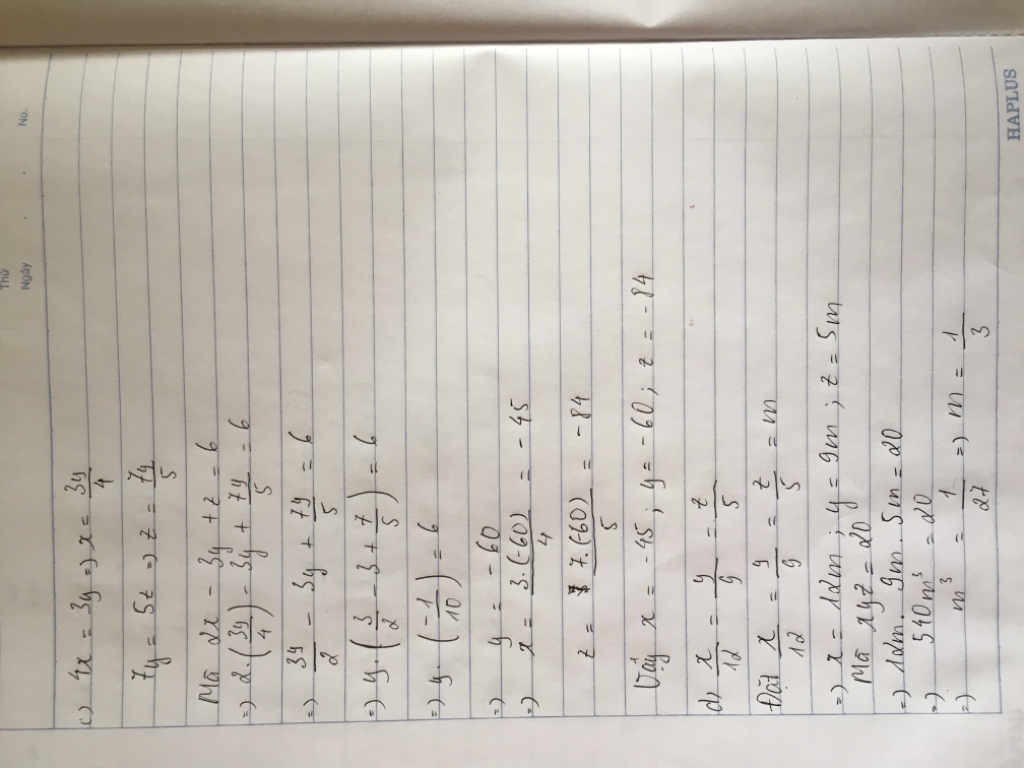 Thứ
Ngày
No.
c) 4x = 3y => x = 3y/4
7y = 5z => z = 7y/5
Mà 2x - 3y + z = 6
=) 2.(3y/4) - 3y + 7y/5 = 6
=) 3y/2 - 3y + 7y/5 = 6
=) y.(3/2 - 3 + 7/5) = 6
=) y.(-1/10) = 6
=) y = -60
=) x = 3.(-60)/4 = -45
z = 7.(-60)/5 = -84
Vậy x = -45; y = -60; z = -84
d) x/12 = y/9 = z/5
Đặt x/12 = y/9 = z/5 = m
=) x = 12m; y = 9m; z = 5m
Mà xyz = 20
=) 12m. 9m. 5m = 20
=) 540m³ = 20
=) m³ = 1/27 =) m = 1/3
HAPLUS